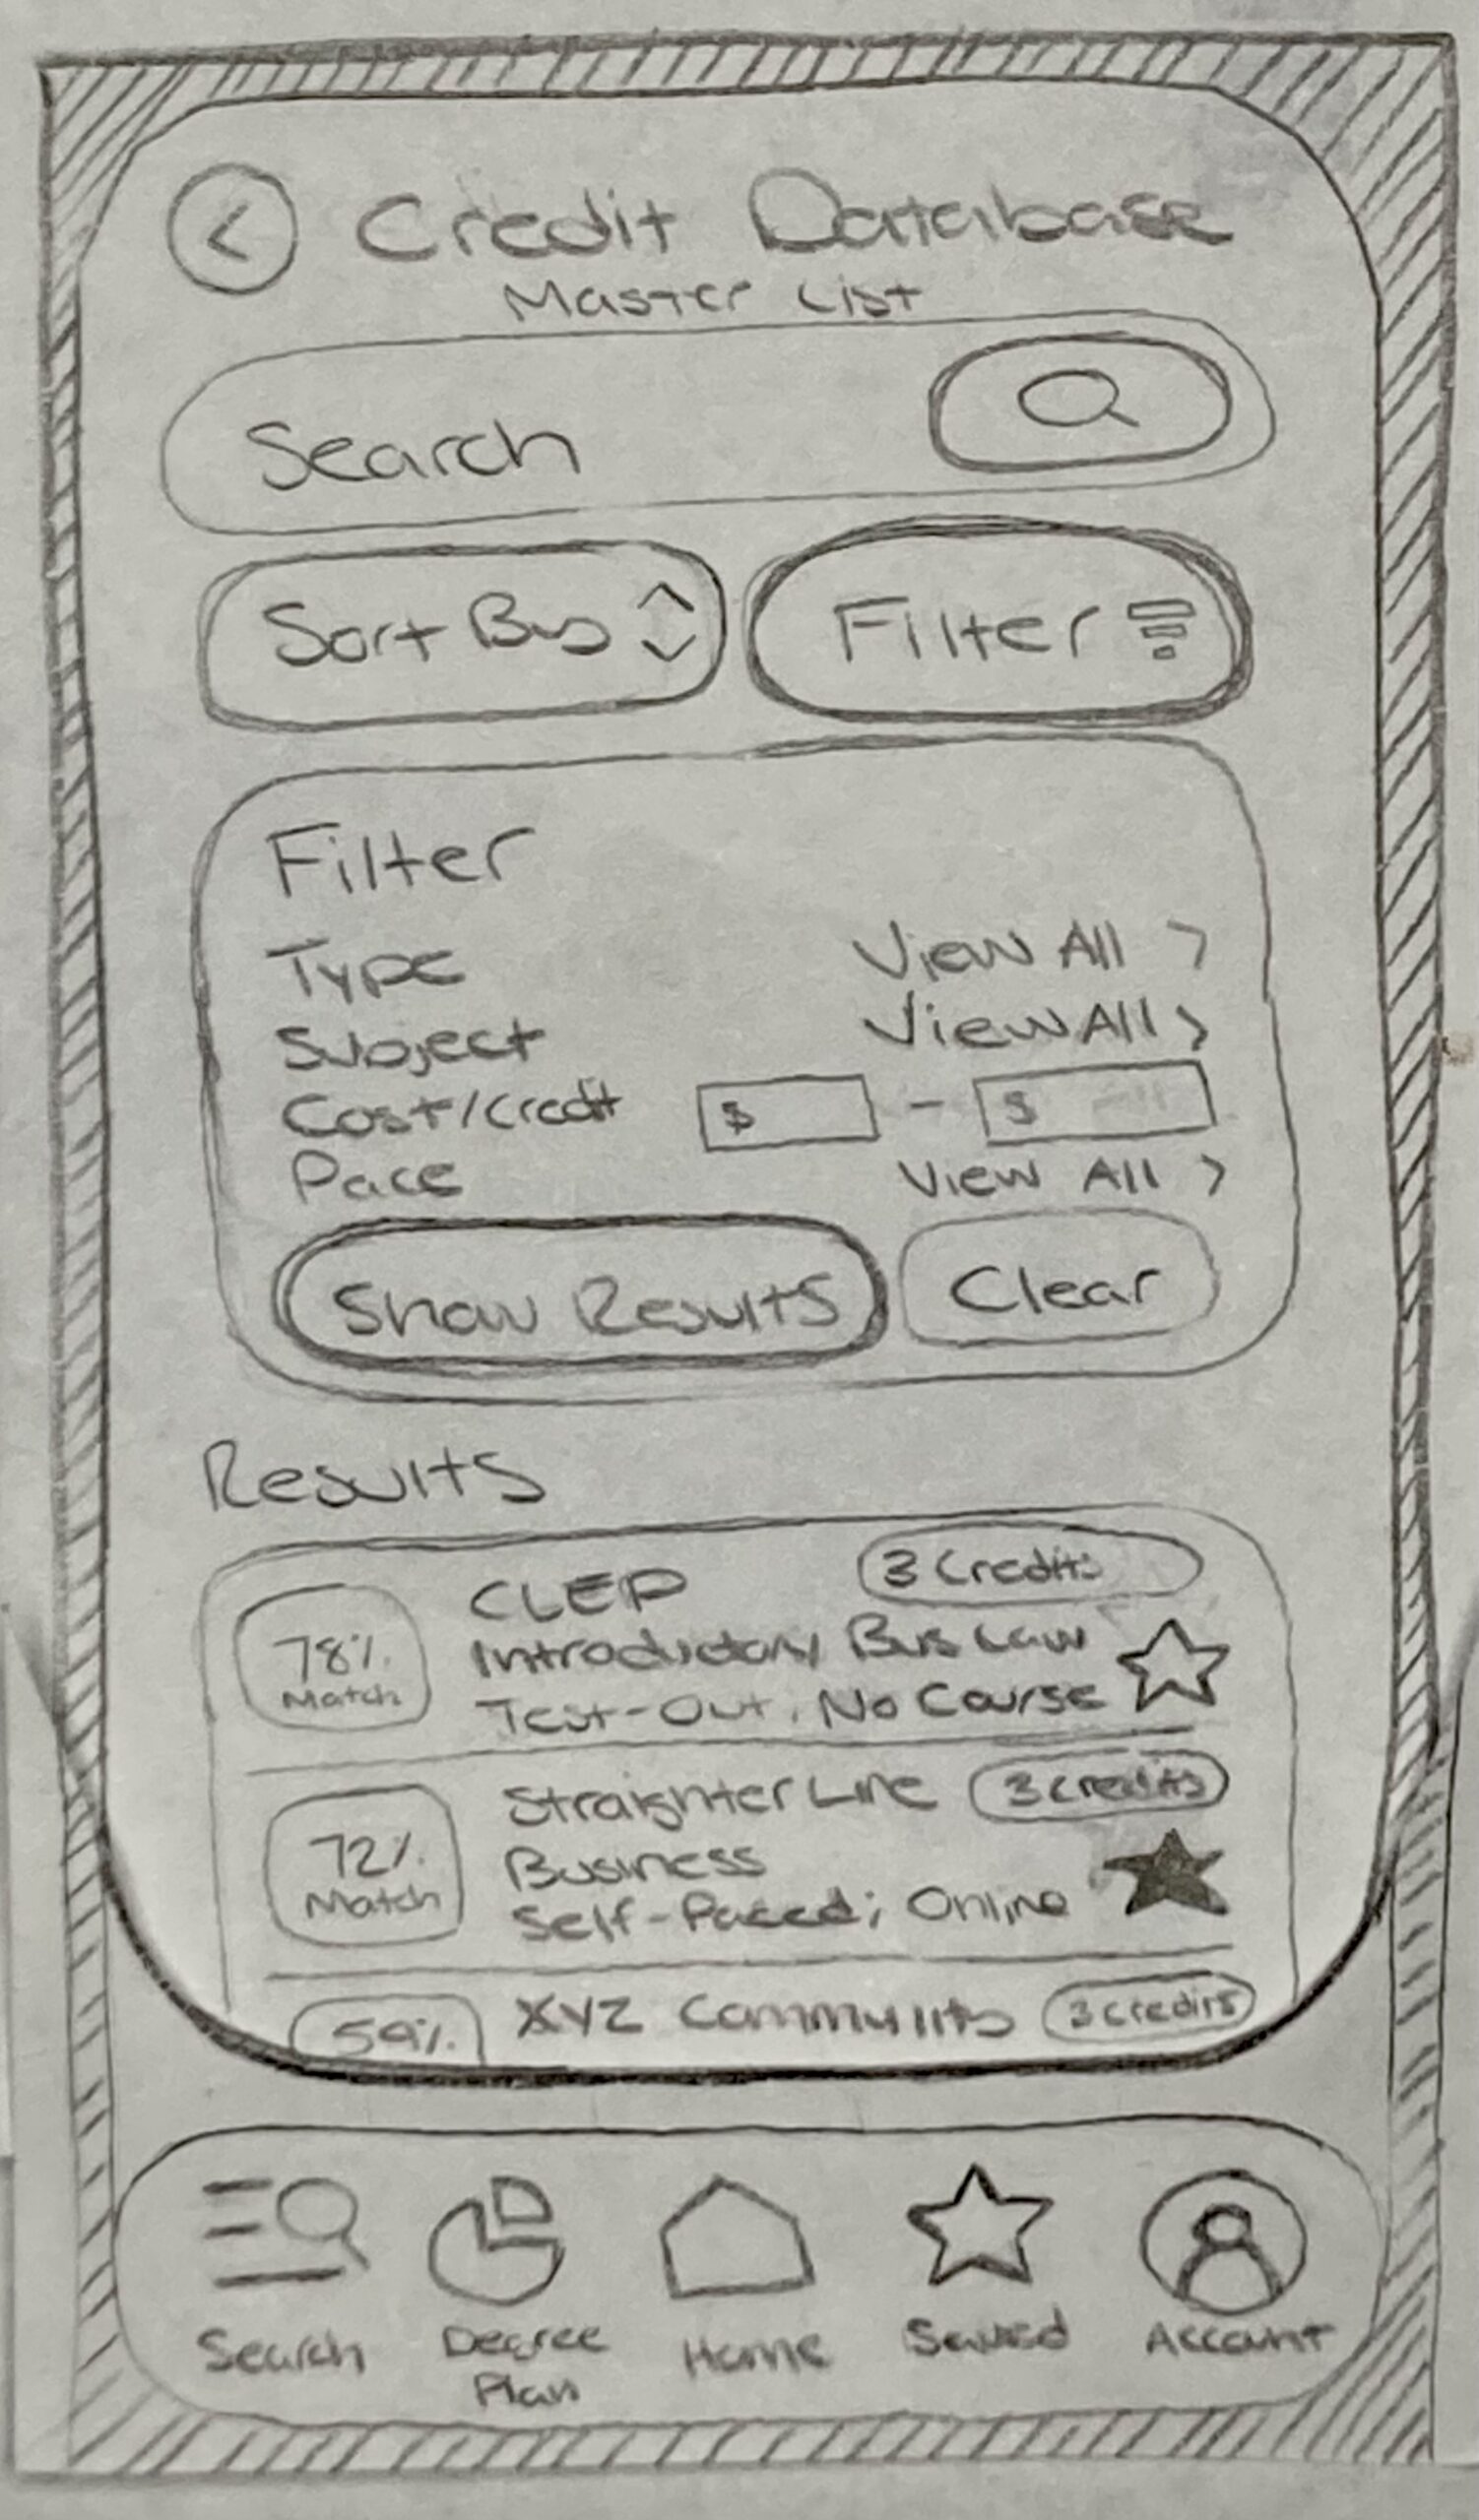 Credit Database
Master List
Search
Sort By
Filter
Filter
Type View All >
Subject View All >
Cost/Credit $ - $
Pace View All >
Show Results Clear
Results
78% Match
CLEP 3 Credits
Introductory Bus Law
Test-Out, No Course
72% Match
StraighterLine 3 Credits
Business
Self-Paced; Online
59% XYZ Community 3 Credits
Search
Degree Plan
Home
Saved
Account